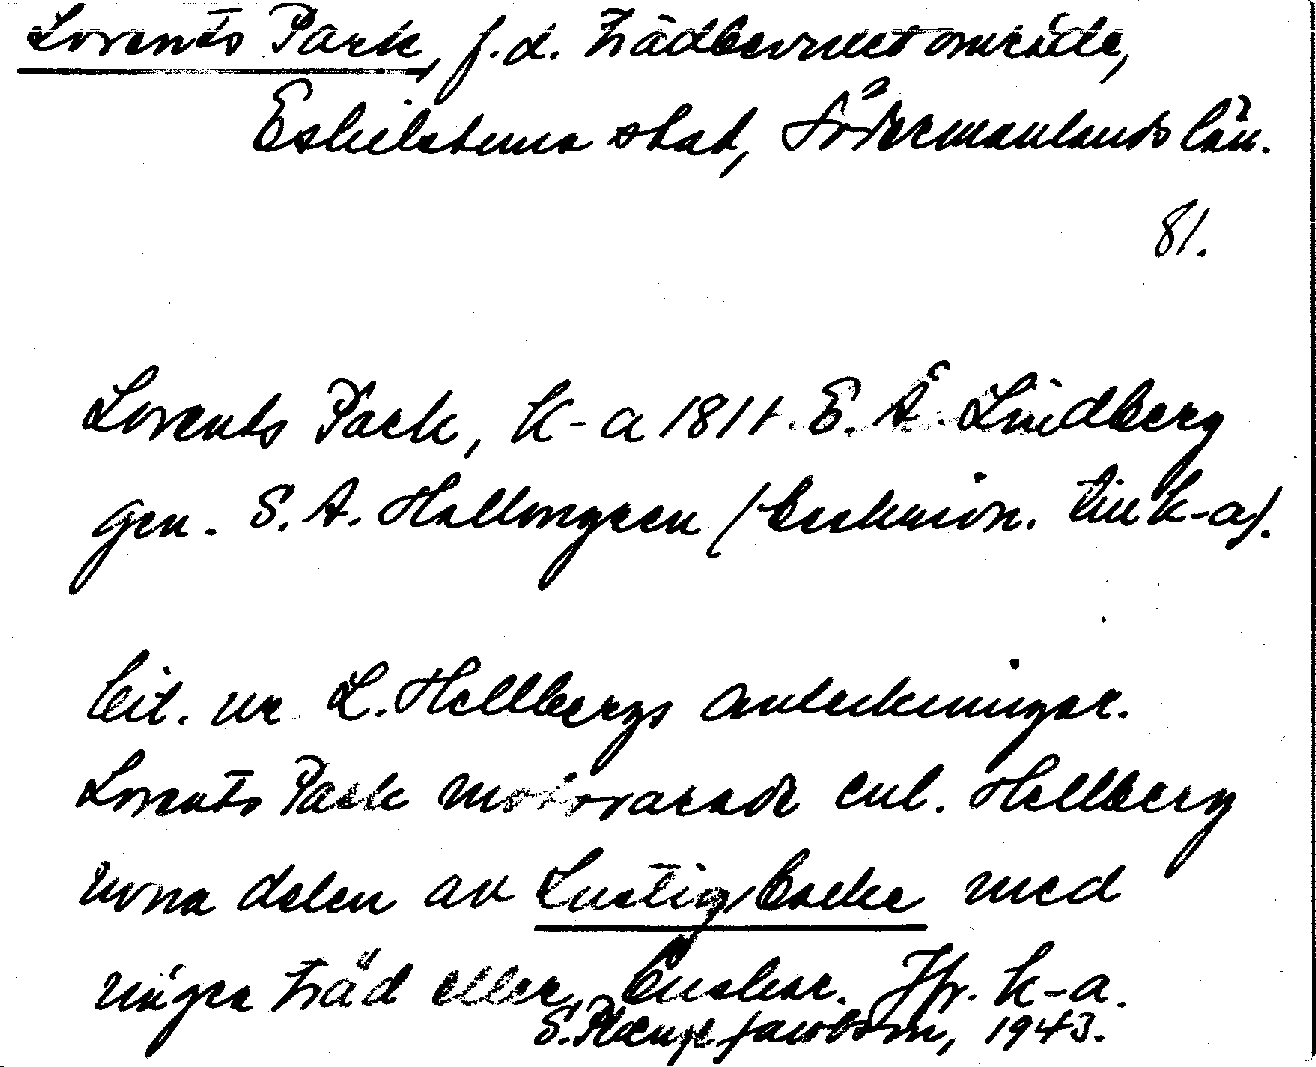 Lorents Park, f.d. trädbevuxet område,
Eskilstuna stad, Södermanlands län.
81.
Lorents Park, k-a 1811 E. A. Lindberg
gen. S. A. Hallongren (beskrivn. till k-a).
Cit. ur L. Hellbergs anteckningar.
Lorents Park motsvarade enl. Hellberg
norra delen av Lustigbacke med
några träd eller buskar. Jfr. k-a.
S. Jacobson, 1943.